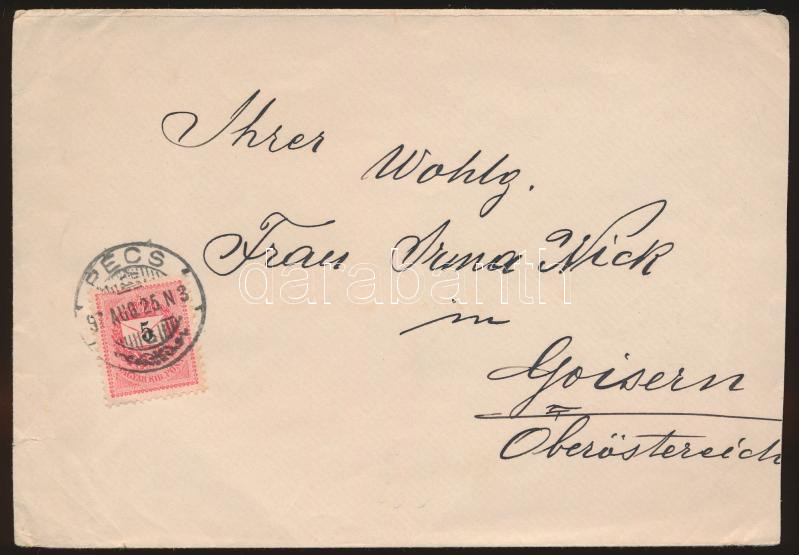 Ihrer
Wohlg.
Frau Irma Nick
in
Goisern
Oberöstereich
PÉCS
97 AUG 25 N 3
5
MAGYAR KIR. POSTA
darabanth